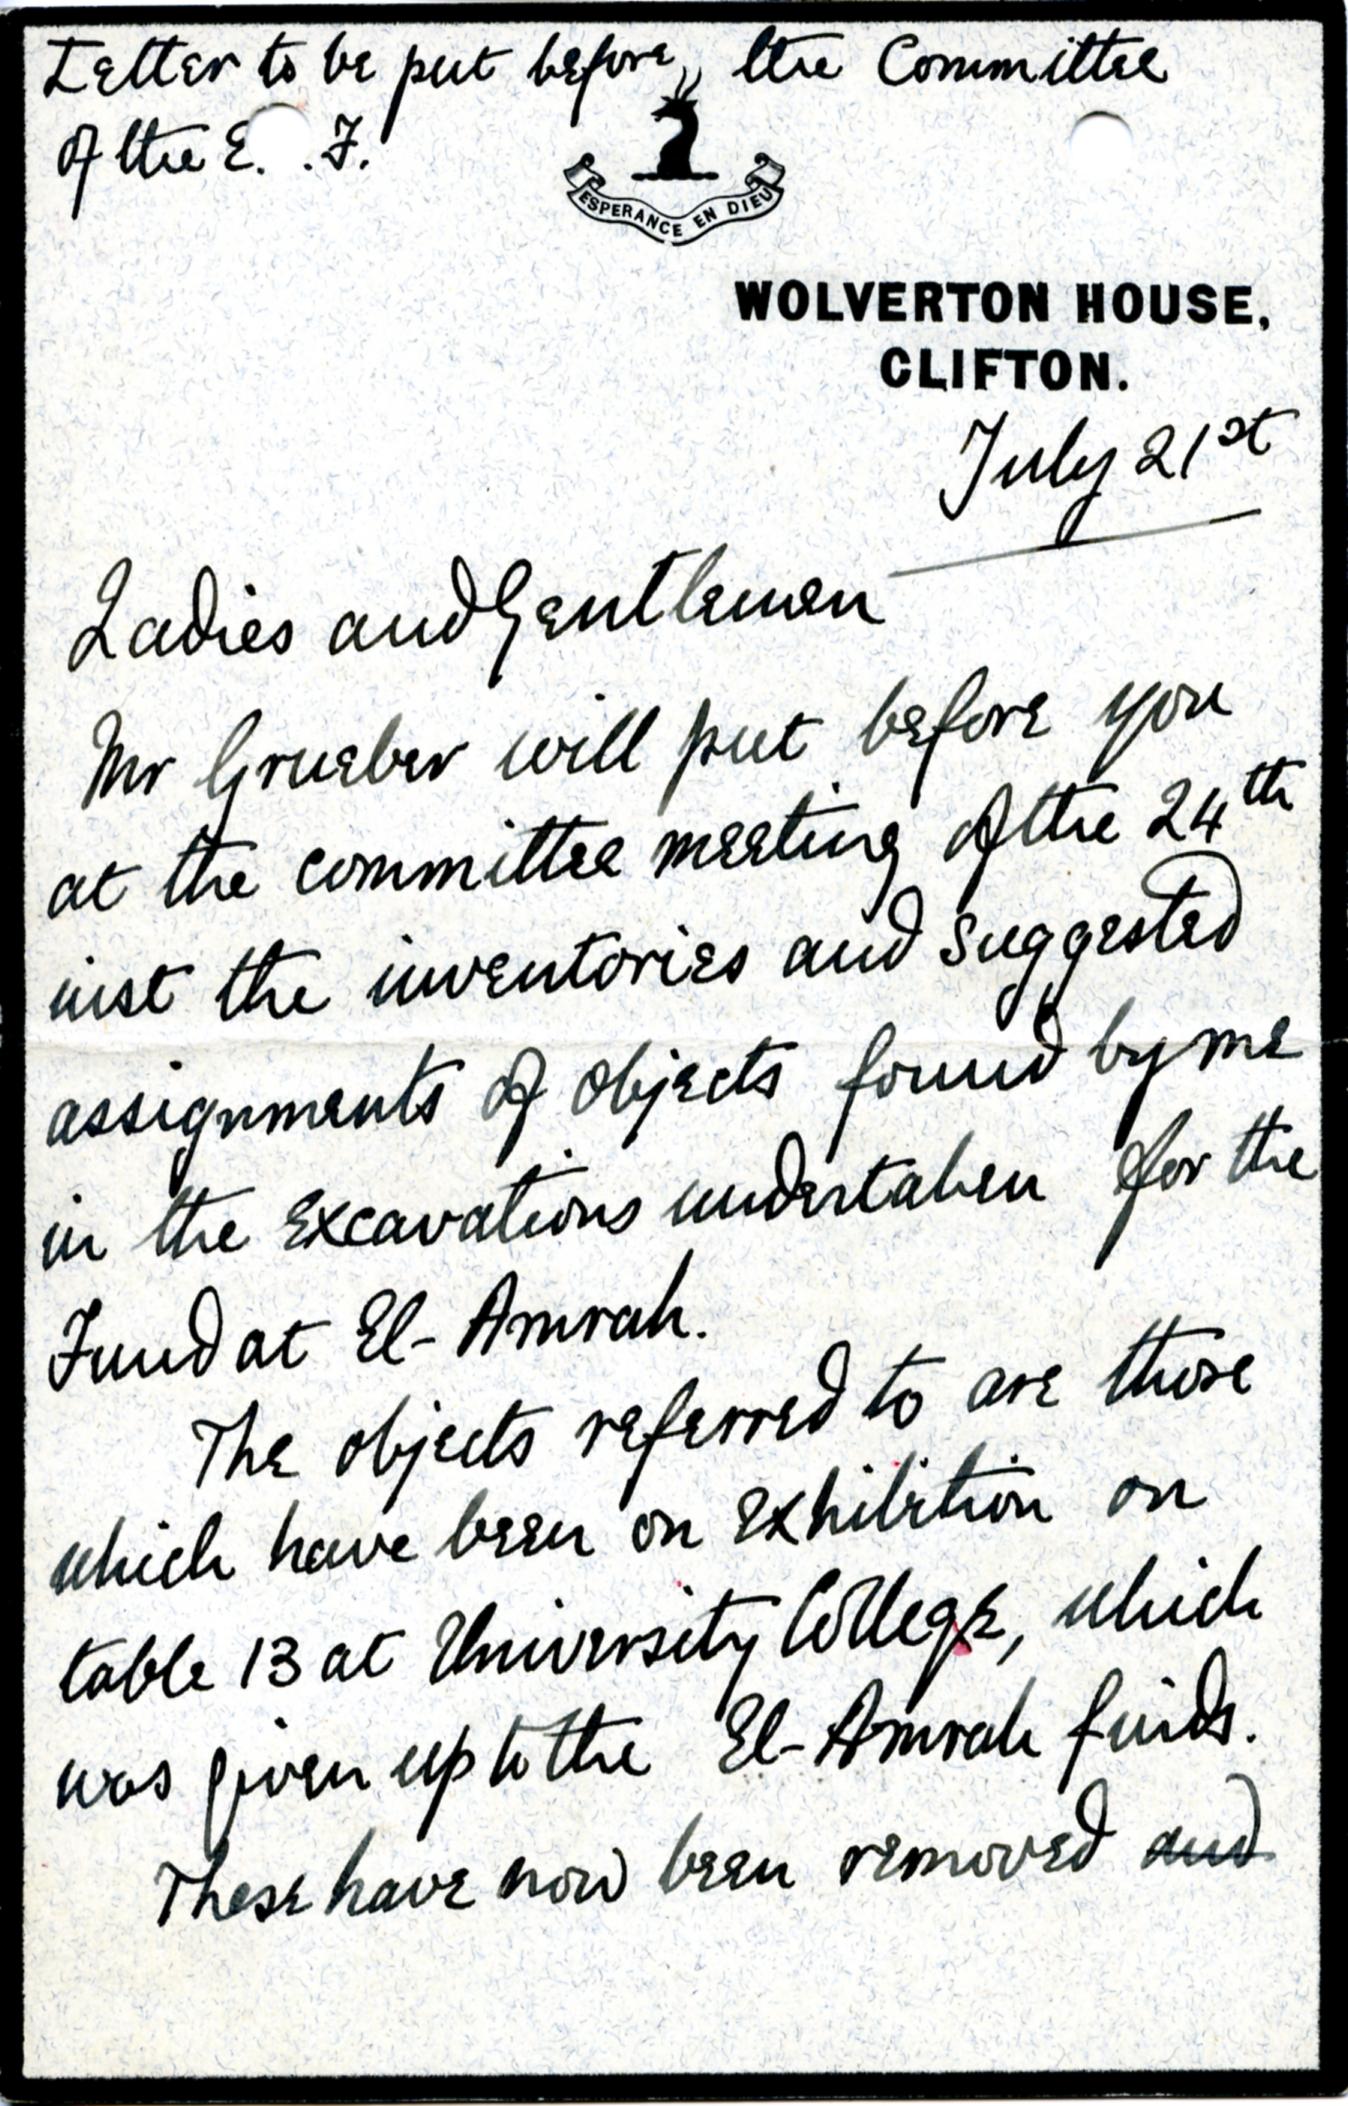 Letter to be put before, the Committee
of the E. .F.
ESPERANCE EN DIEU
WOLVERTON HOUSE,
CLIFTON.
July 21st
Ladies and Gentlemen
Mr Grueber will put before you
at the committee meeting of the 24th
inst the inventories and suggested
assignments of objects found by me
in the excavations undertaken for the
Fund at El-Amrah.
The objects referred to are those
which have been on exhibition on
table 13 at University College, which
was given up to the El-Amrah finds.
These have now been removed and